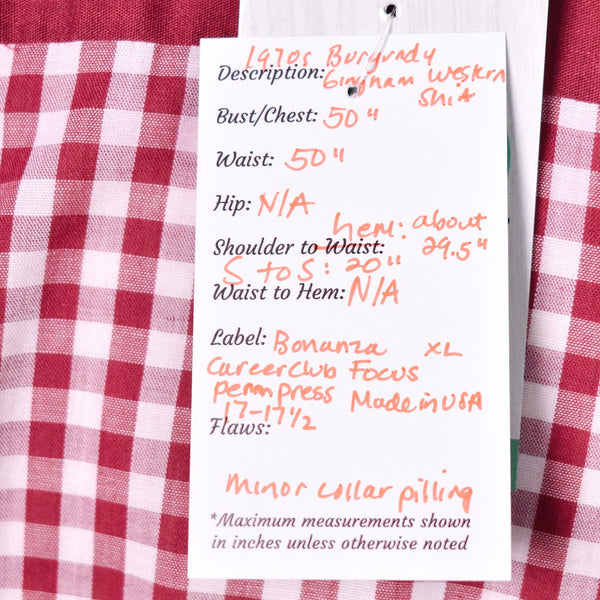 1970s Burgundy
Description: Gingham Western
Shirt
Bust/Chest: 50"
Waist: 50"
Hip: N/A
hem: about
Shoulder to Waist: 29.5"
S to S: 20"
Waist to Hem: N/A
Label: Bonanza XL
Career Club Focus
perm press Made in USA
17-17 1/2
Flaws:
minor collar pilling
*Maximum measurements shown
in inches unless otherwise noted